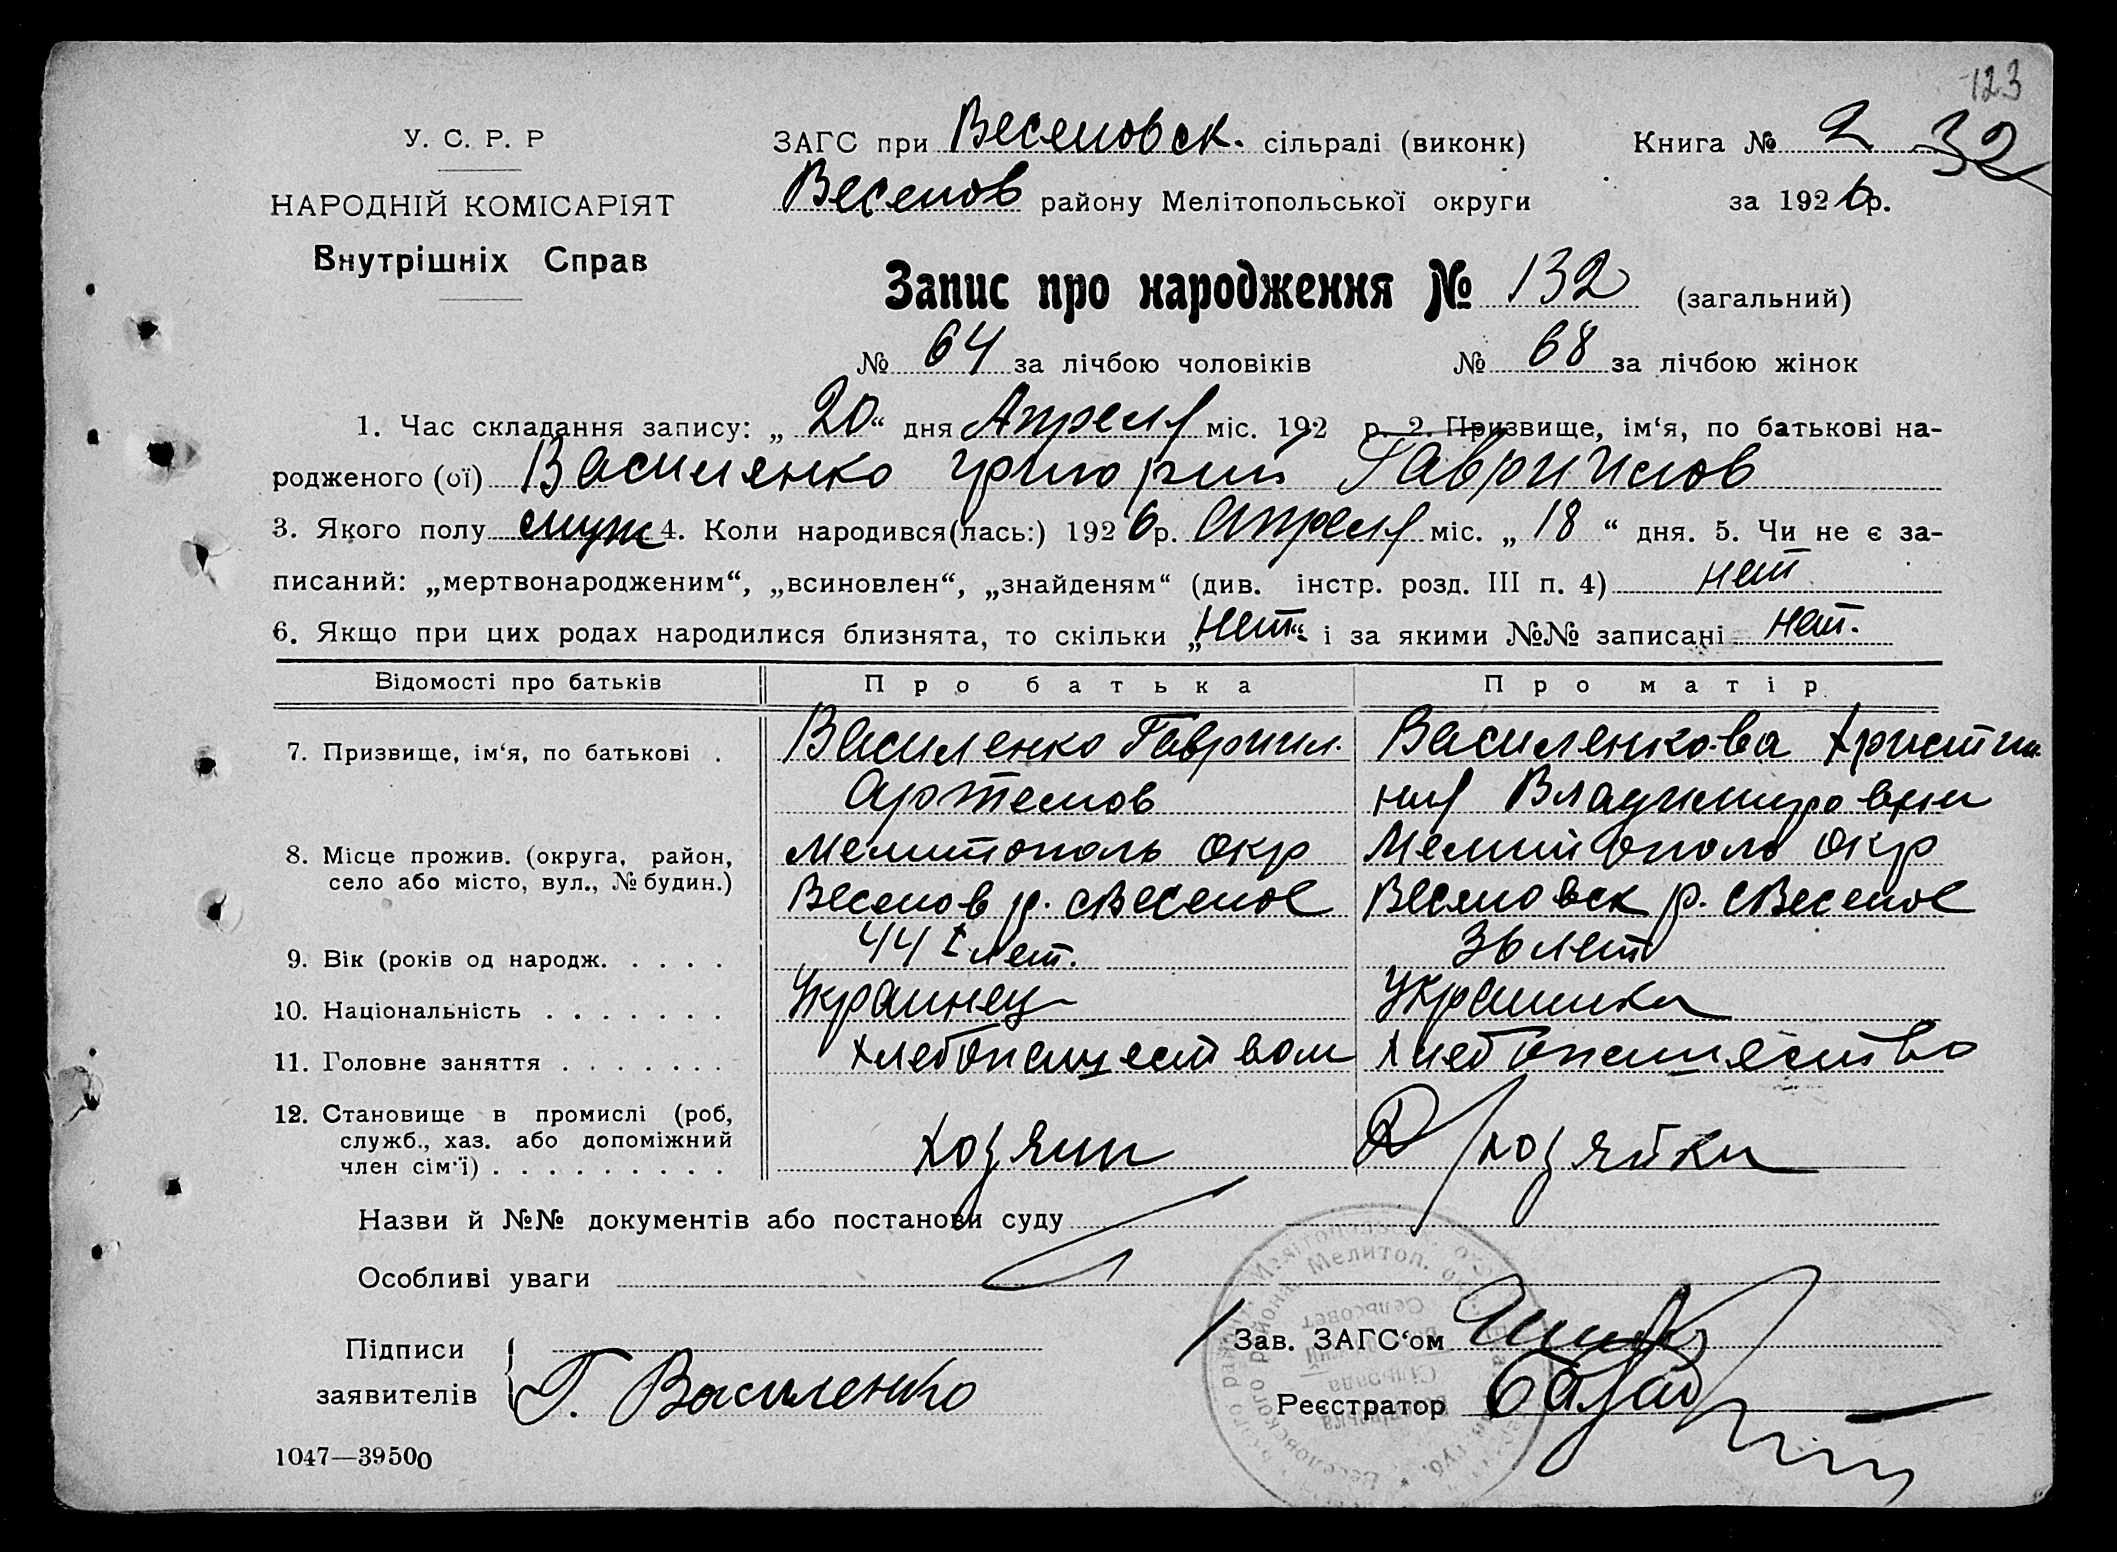 123
У. С. Р. Р
НАРОДНІЙ КОМІСАРІЯТ
Внутрішніх Справ
ЗАГС при Веселовск. сільраді (виконк) Книга № 2 32
Веселов району Мелітопольської округи за 1926 р.
Запис про народження № 132 (загальний)
№ 64 за лічбою чоловіків № 68 за лічбою жінок
1. Час складання запису: „ 20 “ дня Апреля міс. 192 р. 2. Призвище, ім‘я, по батькові на-
родженого (ої) Василенко Григорий Гавриилов
3. Якого полу муж 4. Коли народився(лась:) 1926 р. Апреля міс. „ 18 “ дня. 5. Чи не є за-
писаний: „мертвонародженим“, „всиновлен“, „знайденям“ (див. інстр. розд. III п. 4) нет
6. Якщо при цих родах народилися близнята, то скільки „ нет “ і за якими №№ записані нет.
Відомості про батьків Про батька Про матір
7. Призвище, ім‘я, по батькові . Василенко Гавриил. Василенкова Христи
Артемов ния Владимировни
8. Місце прожив. (округа, район, Мелитополь окр Мелитополь окр
село або місто, вул., № будин.) Веселов р. с Веселое Веселовск р. с Веселое
9. Вік (років од народж. . . . . 44 лет. 36 лет
10. Національність . . . . . . . Украинец Украинка
11. Головне заняття . . . . . . . Хлебопашеством Хлебопашество
12. Становище в промислі (роб, Хозяин Хозяйка
служб., хаз. або допоміжний
член сім‘ї) . . . . . . . . .
Назви й №№ документів або постанови суду
Особливі уваги
Підписи
заявителів Г. Василенко
Зав. ЗАГС‘ом
Реєстратор
1047—39500